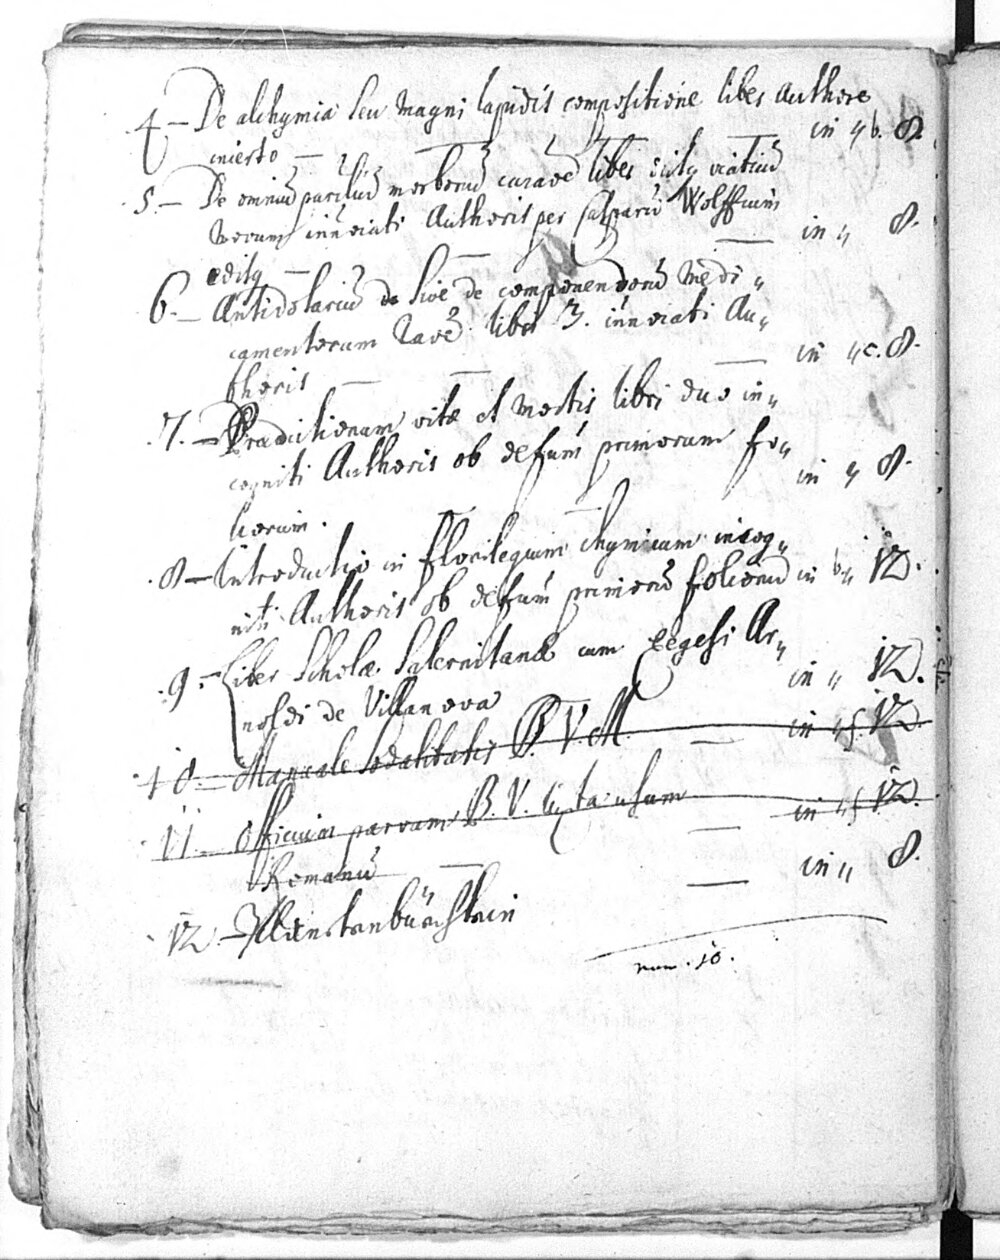 4 — De alchymia seu magni lapidis compositione liber Authore
incerto — — — in 4 b. 8.
5. — De omniũ partiũ morborũ curaõe liber viatiũ
novum innoiati Authoris per Casparũ Wolffium
editq — — — in 4 8.
6. — Antidotariũ de sive de componendorũ Medi „
camentorum raõe liber 3. innoiati Au „
thoris — — — in 4 c. 8.
7. — Praedictionum vitæ et mortis libri duo in „
cogniti Authoris ob defum primorum fo „
liorum. in 4 8.
8 — Introductio in florilegium chymicum incog „
niti Authoris ob defum primorũ foliorũ in b „ 12.
9. — Liber Scholæ Salernitanæ cum exegesi Ar „
noldi de Villanova in „ 12.
10. — Manuale sodalitatis B. V. M — in 12.
11. — Officium parvum B. V. iuxta usum
Romanũ — — in 12.
12 — in „ 8.
num. 10.